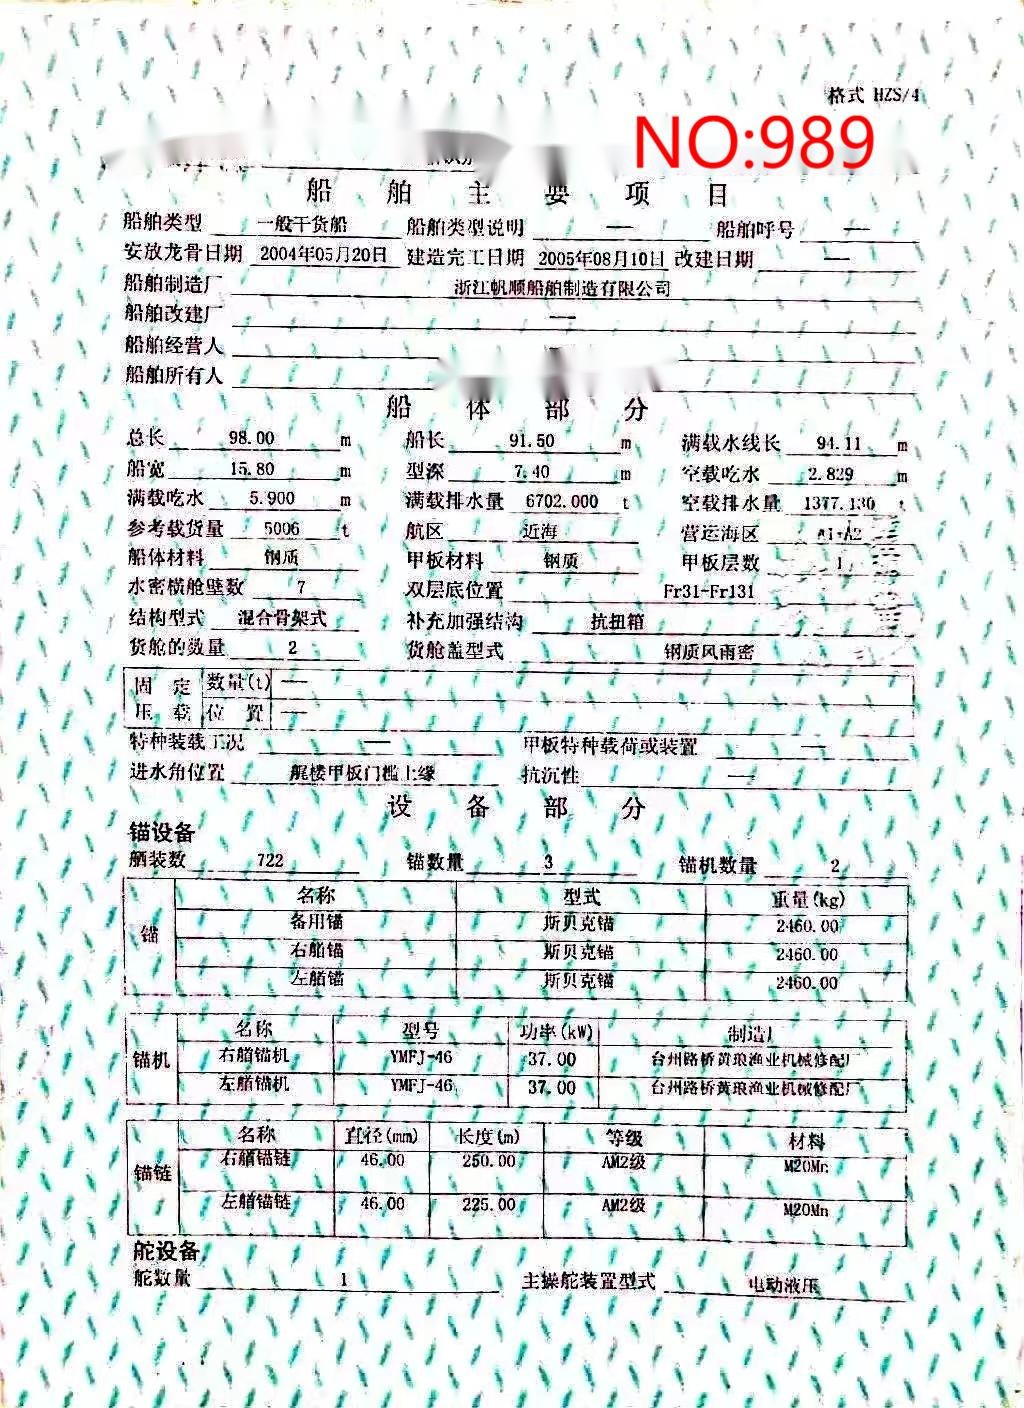 格式 HZS/4
NO:989
船 舶 主 要 项 目
船舶类型 一般干货船 船舶类型说明 — 船舶呼号 —
安放龙骨日期 2004年05月20日 建造完工日期 2005年08月10日 改建日期 —
船舶制造厂 浙江帆顺船舶制造有限公司
船舶改建厂 —
船舶经营人
船舶所有人
船 体 部 分
总长 98.00 m 船长 91.50 m 满载水线长 94.11 m
船宽 15.80 m 型深 7.40 m 空载吃水 2.829 m
满载吃水 5.900 m 满载排水量 6702.000 t 空载排水量 1377.130 t
参考载货量 5006 t 航区 近海 营运海区 A1+A2
船体材料 钢质 甲板材料 钢质 甲板层数 1
水密横舱壁数 7 双层底位置 Fr31-Fr131
结构型式 混合骨架式 补充加强结构 抗扭箱
货舱的数量 2 货舱盖型式 钢质风雨密
固 定 数量(t) —
压 载 位 置 —
特种装载工况 — 甲板特种载荷或装置 —
进水角位置 艉楼甲板门槛上缘 抗沉性 —
设 备 部 分
锚设备
舾装数 722 锚数量 3 锚机数量 2
名称 型式 重量(kg)
锚
备用锚 斯贝克锚 2460.00
右艏锚 斯贝克锚 2460.00
左艏锚 斯贝克锚 2460.00
名称 型号 功率(kW) 制造厂
锚机
右艏锚机 YMFJ-46 37.00 台州路桥黄琅渔业机械修配厂
左艏锚机 YMFJ-46 37.00 台州路桥黄琅渔业机械修配厂
名称 直径(mm) 长度(m) 等级 材料
锚链
右艏锚链 46.00 250.00 AM2级 M20Mn
左艏锚链 46.00 225.00 AM2级 M20Mn
舵设备
舵数量 1 主操舵装置型式 电动液压